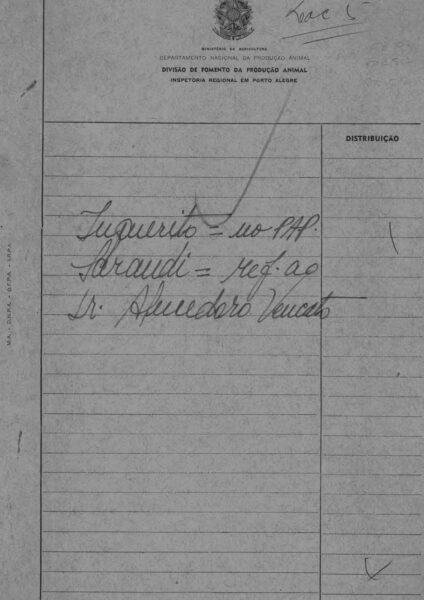 MINISTÉRIO DA AGRICULTURA
DEPARTAMENTO NACIONAL DA PRODUÇÃO ANIMAL
DIVISÃO DE FOMENTO DA PRODUÇÃO ANIMAL
INSPETORIA REGIONAL EM PORTO ALEGRE
DISTRIBUIÇÃO
Inquerito = no PAP.
Sarandi = ref. ao
Dr. Vencato